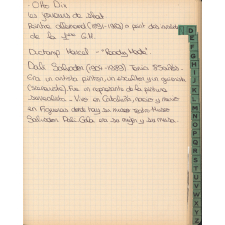 - Otto Dix
les joueurs de skat
Peintre allemand (1891-1969) a peint des
de la 1ère G.M.
Duchamp Marcel - "Ready Made"
Dalí Salvador (1904-1989) Tenía 85 años.
Era un artista pintor, un escultor y un guionista
(surrealista). Fue un representante de la pintura
surrealista - Vivió en Cataluña, nació y murió
en Figueras donde hay su museo Teatro-Museo
Salvador Dalí. Gala era su mujer y su musa.
D
E
F
G
H
I
J
K
L
M
N
O
P
Q
R
S
T
U
V
W
X
Y
Z